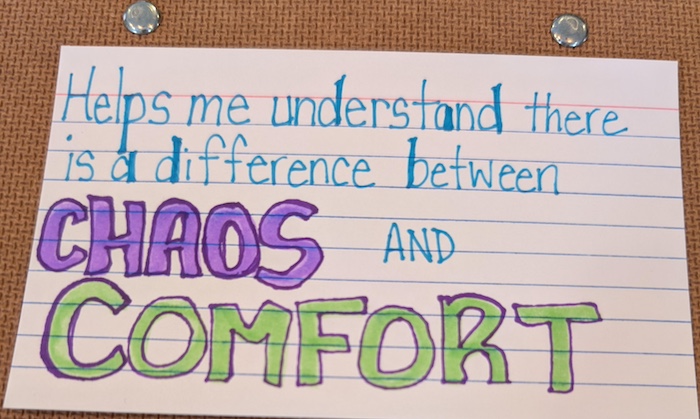 Helps me understand there
is a difference between
CHAOS AND
COMFORT